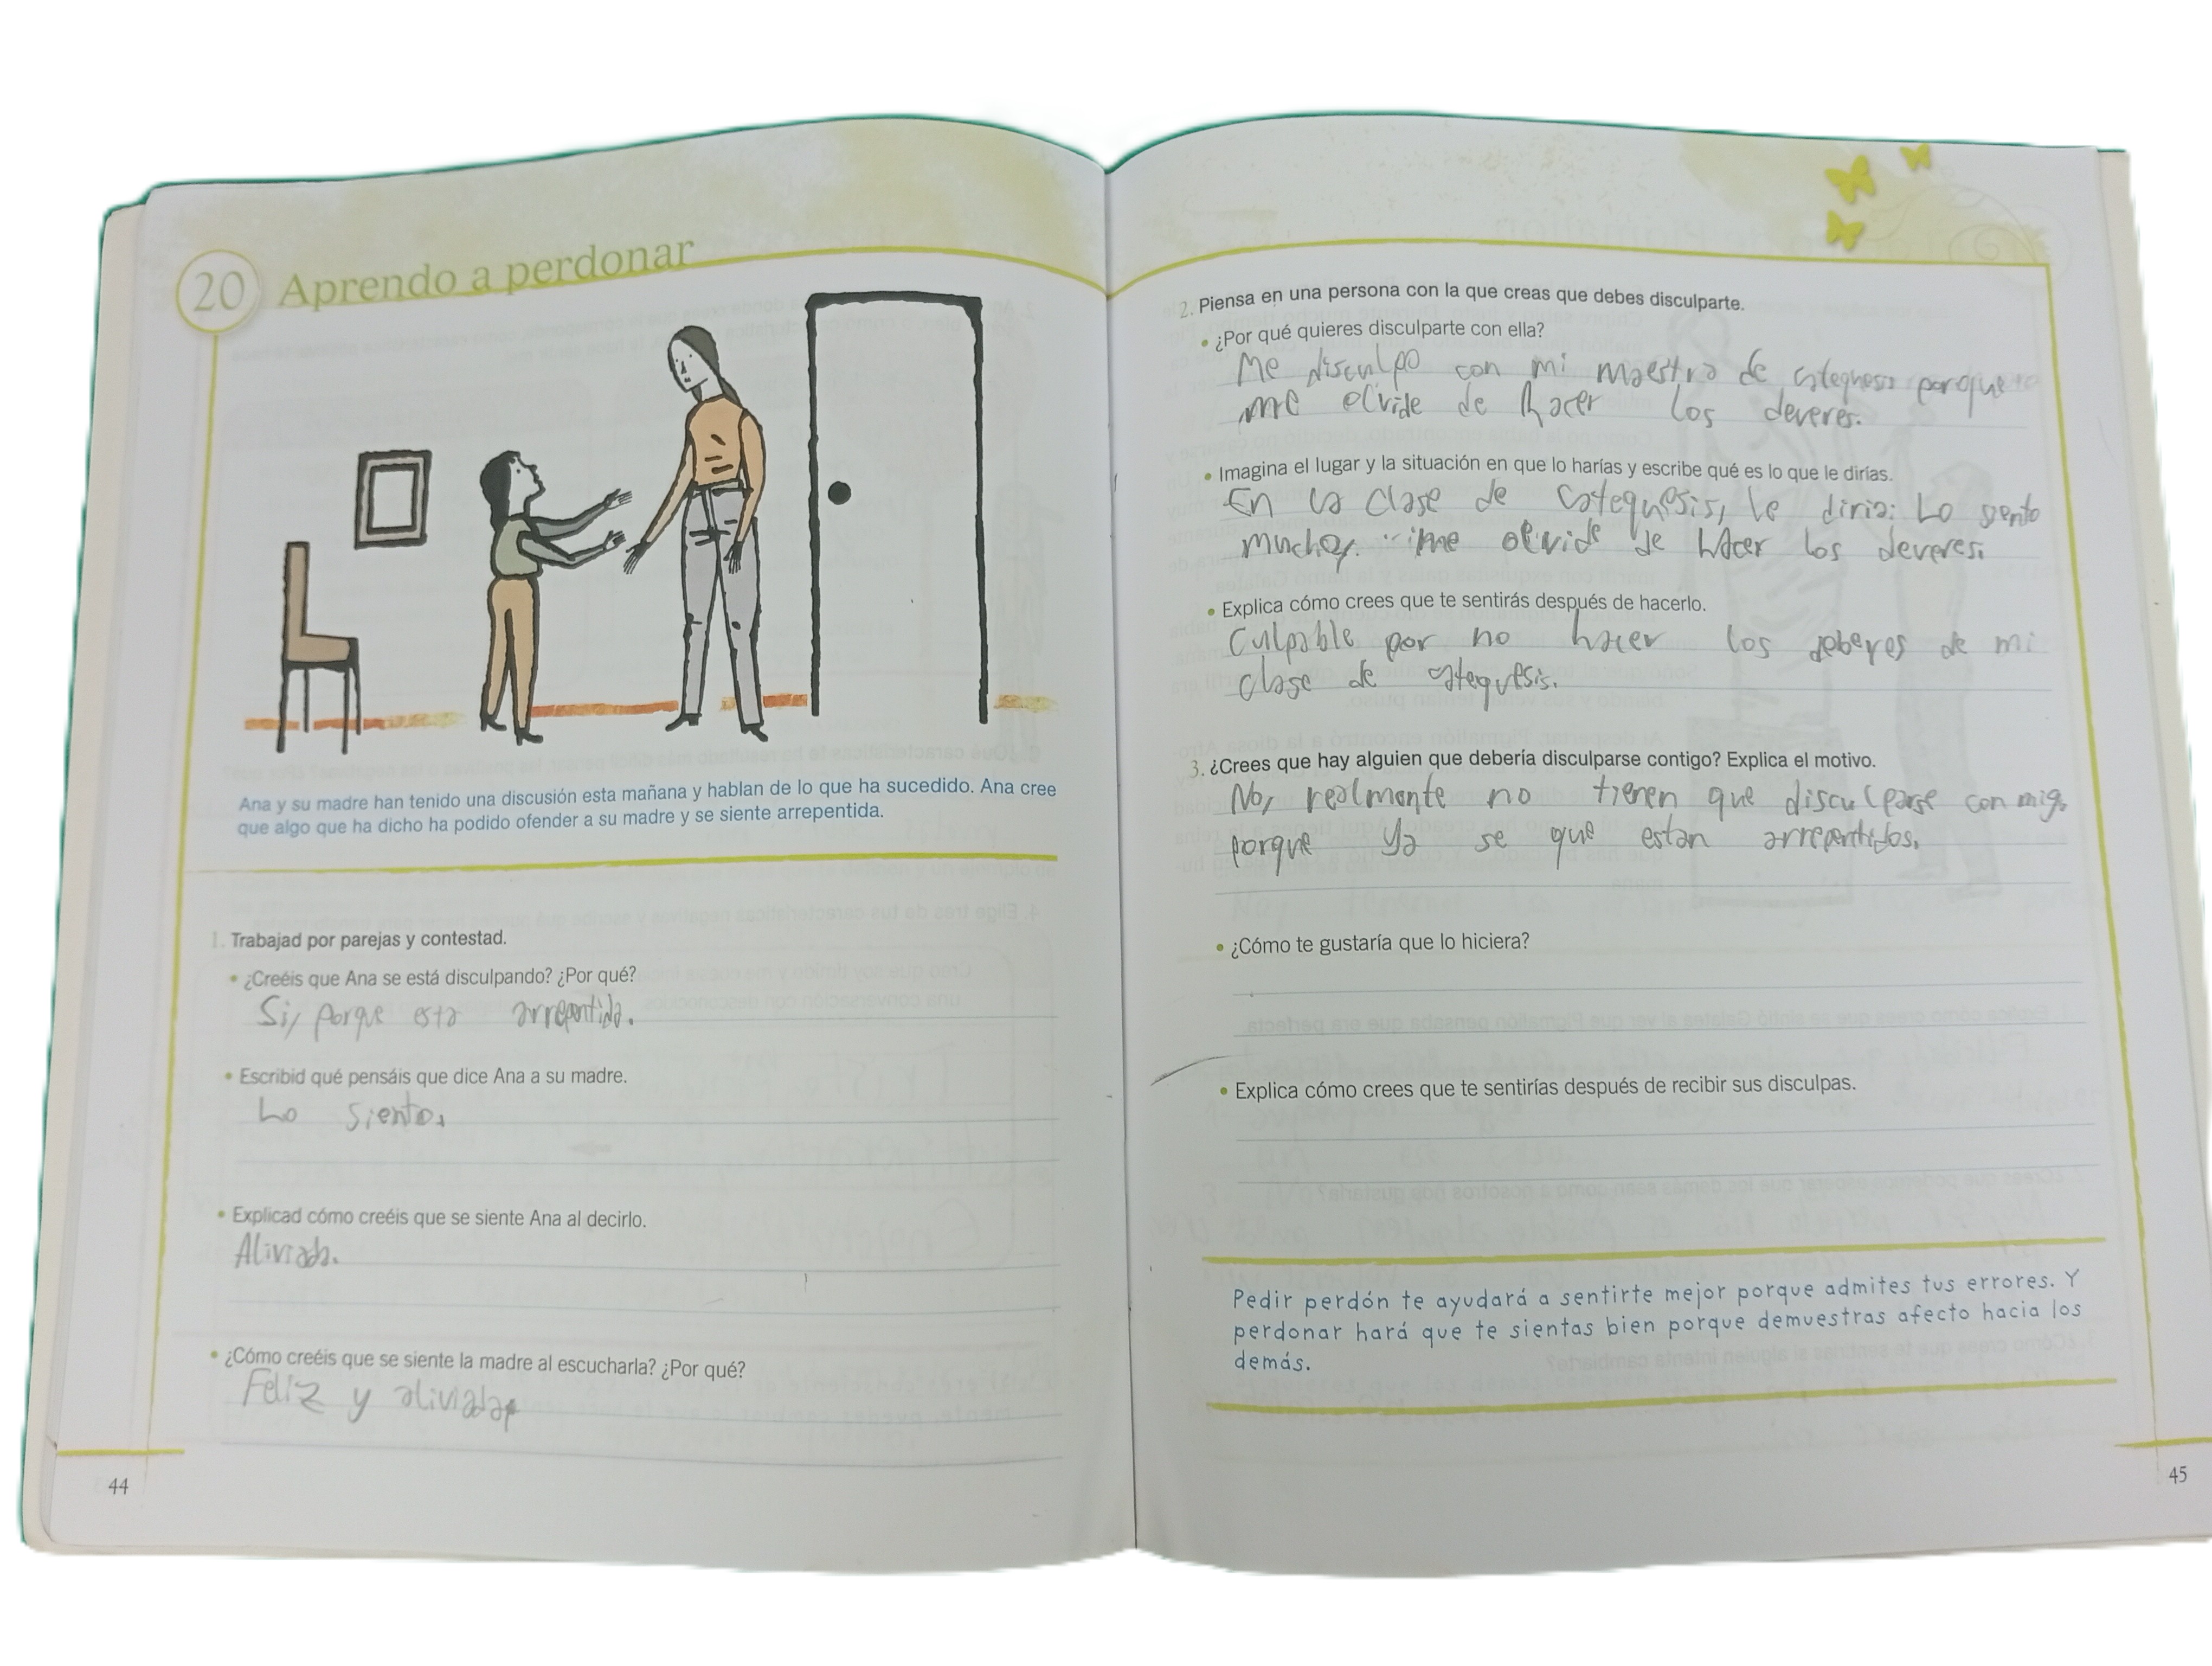 20 Aprendo a perdonar
Ana y su madre han tenido una discusión esta mañana y hablan de lo que ha sucedido. Ana cree
que algo que ha dicho ha podido ofender a su madre y se siente arrepentida.
1. Trabajad por parejas y contestad.
• ¿Creéis que Ana se está disculpando? ¿Por qué?
Si, porque esta arrepentida.
• Escribid qué pensáis que dice Ana a su madre.
Lo siento.
• Explicad cómo creéis que se siente Ana al decirlo.
Aliviada.
• ¿Cómo creéis que se siente la madre al escucharla? ¿Por qué?
Feliz y aliviada
44
2. Piensa en una persona con la que creas que debes disculparte.
• ¿Por qué quieres disculparte con ella?
Me disculpo con mi maestra de catequesis porque
me olvide de hacer los deveres.
• Imagina el lugar y la situación en que lo harías y escribe qué es lo que le dirías.
En la clase de catequesis, le diria: Lo siento
mucho, me olvide de hacer los deveres.
• Explica cómo crees que te sentirás después de hacerlo.
Culpable por no hacer los deberes de mi
clase de catequesis.
3. ¿Crees que hay alguien que debería disculparse contigo? Explica el motivo.
No, realmente no tienen que disculparse conmigo
porque ya se que estan arrepentidos.
• ¿Cómo te gustaría que lo hiciera?
• Explica cómo crees que te sentirías después de recibir sus disculpas.
Pedir perdón te ayudará a sentirte mejor porque admites tus errores. Y
perdonar hará que te sientas bien porque demuestras afecto hacia los
demás.
45